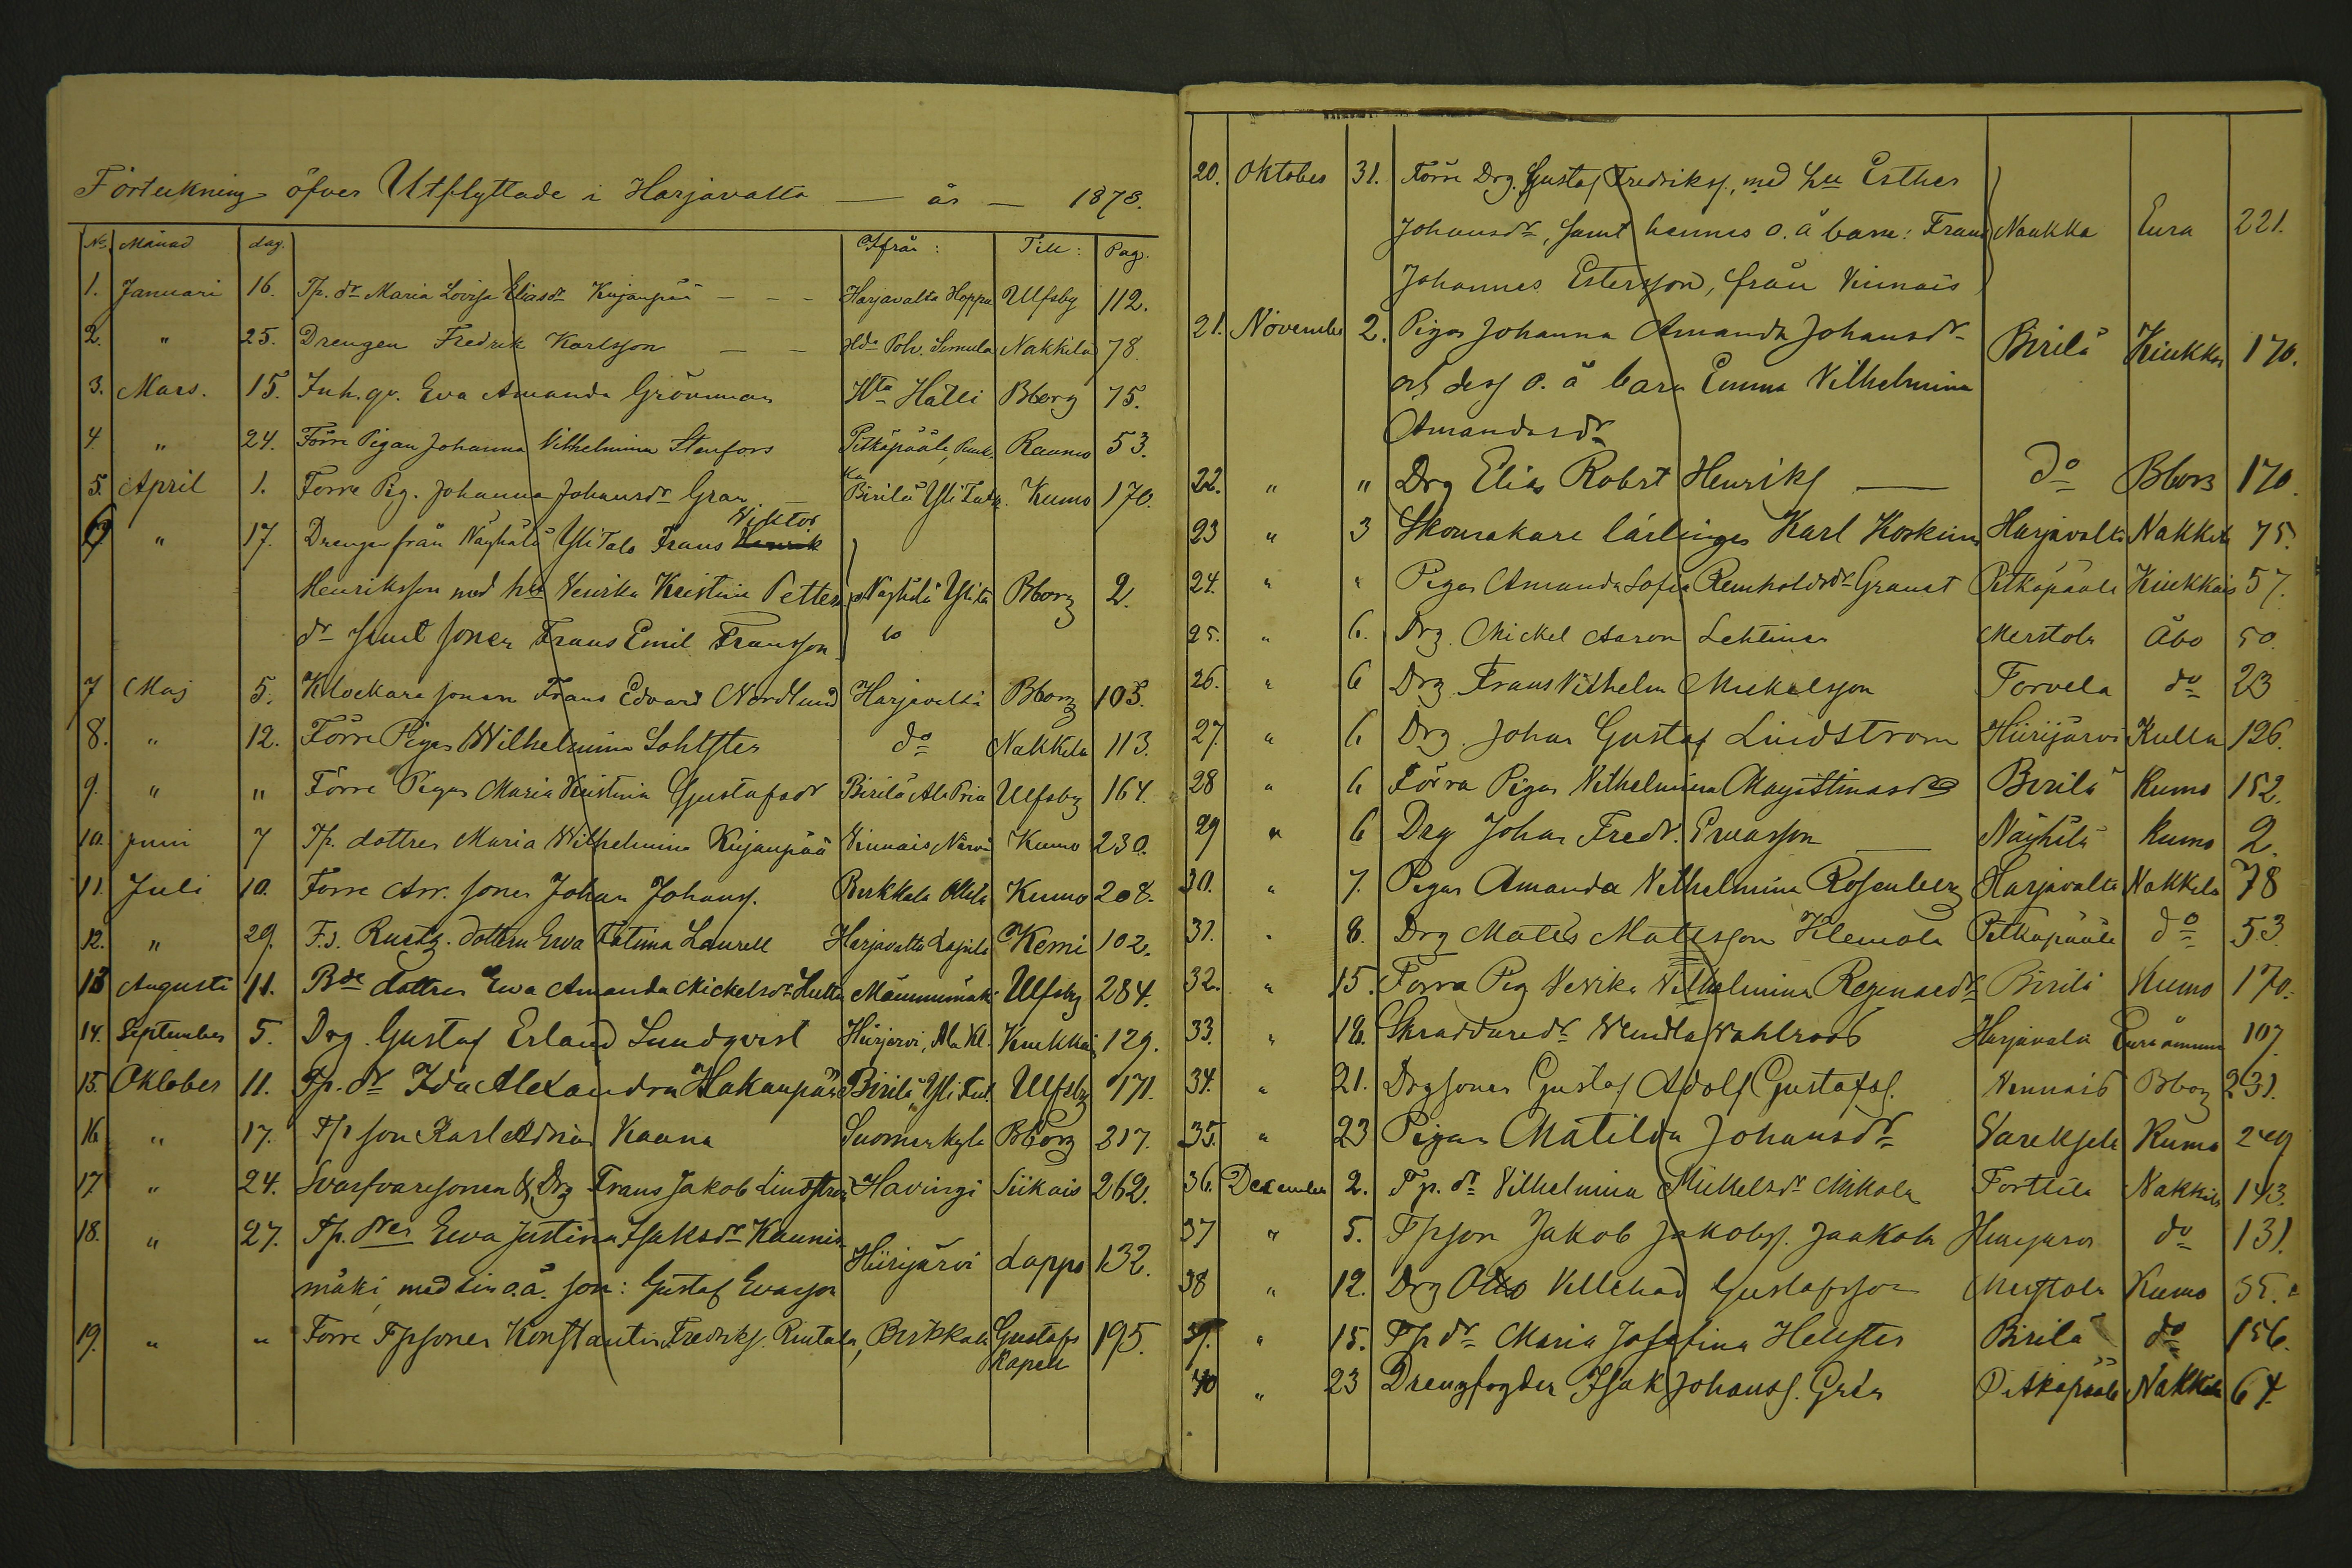 Förteckning öfver Utflyttade i Harjavalta — år — 1878.
No. Månad dag. Ifrån: Till: Pag.
1. Januari 16. Tp. dr Maria Lovisa Eliasdr Kujanpää - - - Harjavalta Hoppu Ulfsby 112.
2. " 25. Drengen Fredrik Karlsson — — Hda Poh. Simula Nakkila 78.
3. Mars. 15. Inh. qv. Eva Amanda Grönman Hta Hälli Bborg 75.
4. " 24. Förre Pigan Johanna Vilhelmina Stenfors Pitkäpäälä, Raumo 53.
5. April 1. Förre Pig. Johanna Johansdr Gran — Pirilä Yli Kumo 170.
Viktor
6 " 17. Drengen från Näyhälä Yli Talo Frans Henrik
Henriksson med hu Henrika Kristina Petters Näyhälä Yli ta Bborg 2.
dr samt sonen Frans Emil Fransson lo
7 Maj 5. Klockare sonen Frans Edvard Nordlund Harjavalta Bborg 103.
8. " 12. Förre Pigan Wilhelmina Sohlsten do Nakkila 113.
9. " " Förre Pigan Maria Kristina Gustafsdr Pirilä Ala Pria Ulfsby 164.
10. Juni 7 Tp. dottren Maria Wilhelmina Kujanpää Vinnais Kumo 230.
11. Juli 10. Förre Arr. sonen Johan Johanss. Pirkkala Ollila Kumo 208.
12. " 29. F.d. Rusth. dottern Ewa Fatima Laurell Harjavalta Kemi 102.
13 Augusti 11. Bde dottren Ewa Amanda Mickelsdr Mämmimäki Ulfsby 284.
14. September 5. Drg. Gustaf Erland Lundqvist Hiirijärvi, Ala Kl. Kiukkais 129.
15. Oktober 11. Tp. dr Ida Alexandra Hakanpää Pirilä, Yli Ulfsby 171.
16 " 17. Tp son Karl Adrian Kaana Suomenkylä Bborg 217.
17 " 24. Svarfvaresonen & Drg Frans Jakob Lindström Havingi Siikais 262.
18. " 27. Tp. dren Ewa Justina Isaksdr Kaunis-
mäki, med sin o.ä. son: Gustaf Evasson Hiirijärvi Lappo 132.
19. " " Förre Tpsonen Konstantin Fredrikss. Rintala, Pirkkala Gustafs 195.
Kapell
20. Oktober 31. Förre Drg. Gustaf Fredrikss., med hu Esther
Johansdr, samt hennes o. ä barn: Frans Naukka Eura 221.
Johannes Estersson, från Vinnais
21. November 2. Pigan Johanna Amanda Johansdr
och dess o. ä barn Emma Vilhelmina Pirilä Kiukkas 170.
Amandasdr
22. " " Drg Elias Robert Henrikss — do Bborg 170.
23 " 3 Skomakare lärlingen Karl Koskinen Harjavalta Nakkila 75.
24. " " Pigan Amanda Sofia Reinholdsdr Granat Pitkäpäälä Kiukkais 57.
25. " 6. Drg. Mickel Aaron Lehtinen Merstola Åbo 50.
26. " 6 Drg Frans Vilhelm Mickelsson Torvela do 23
27. " 6 Drg. Johan Gustaf Lindström Hiirijärvi Kulla 126.
28 " 6 Förra Pigan Vilhelmina Majastinasdr Pirilä Kumo 152.
29 " 6 Drg Johan Fredr. — Näyhälä Kumo 2.
30. " 7. Pigan Amanda Vilhelmina Rosenberg Harjavalta Nakkila 78
31. " 8. Drg Matts Mattsson Klemola Pitkäpäälä do 53
32. " 15. Förra Pig Henrika Vilhelmina Reginasdr Pirilä Kumo 170.
33. " 18. Skräddaredr Wendla Wahlroos Harjavalta Euraåminne 107.
34. " 21. Drgsonen Gustaf Adolf Gustafss. Vinnais Bborg 231.
35. " 23 Pigan Matilda Johansdr Kumo 249
36. December 2. Tp. dr Vilhelmina Mickelsdr Mikola Torttila Nakkila 143.
37 " 5. Tpson Jakob Jakobss. Jaakola Hiirijärvi do 131.
38 " 12. Drg Otto Villehad Gustafsson Merstola Kumo 35.
39. " 15. Tp dr Maria Josefina Hellsten Pirilä do 156.
40 " 23 Drengfogden Isak Johanss. Grén Pitkäpäälä Nakkila 64.